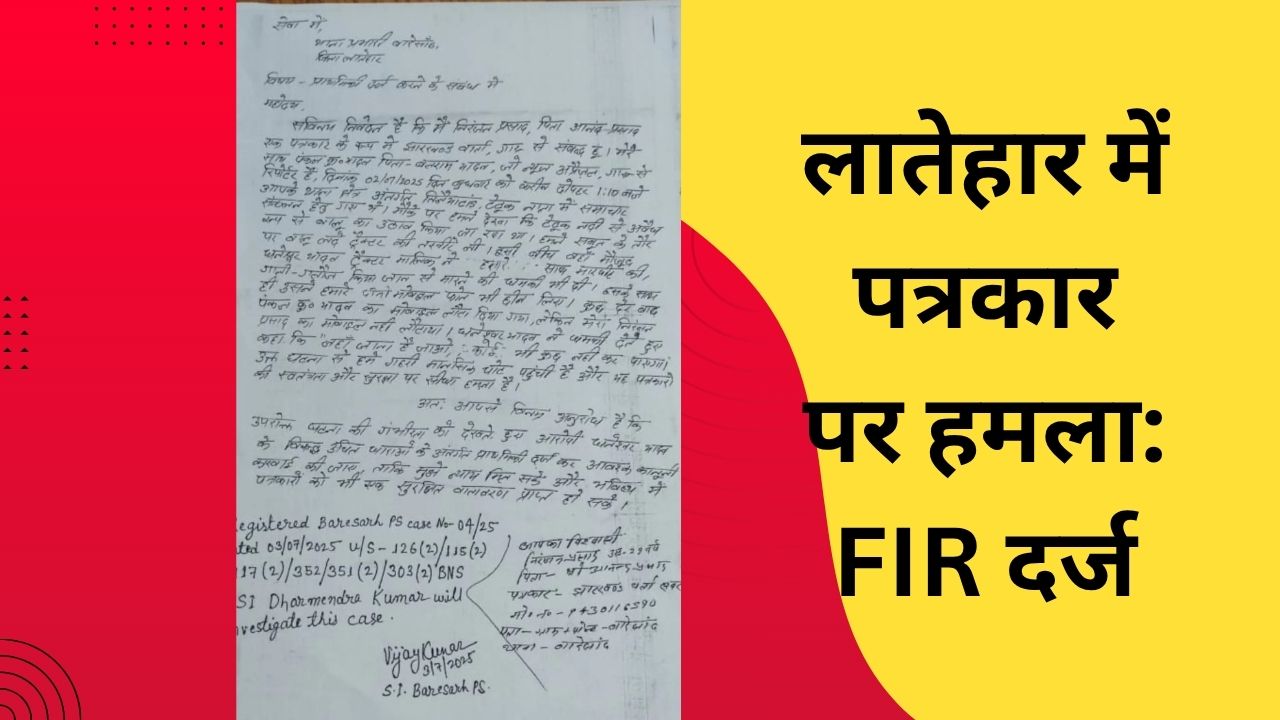 सेवा में,
थाना प्रभारी बारेसाँढ़,
जिला लातेहार
विषय - प्राथमिकी दर्ज करने के संबंध में
महोदय,
सविनय निवेदन है कि मैं निरंजन प्रसाद, पिता आनंद प्रसाद
एक पत्रकार के रूप में झारखण्ड वार्ता, गारू से संबद्ध हूं। मेरे
साथ पंकज कु० यादव पिता- बलराम यादव, जो न्यूज अप्रैजल, गारू से
रिपोर्टर हैं, दिनांक 02/07/2025 दिन बुधवार को करीब दोपहर 1:10 बजे
आपके थाना क्षेत्र अंतर्गत टेटूक नाला में समाचार
संकलन हेतु गया थे। मौके पर हमने देखा कि टेटूक नदी से अवैध
रूप से बालू का उठाव किया जा रहा था। हमने सबूत के तौर
पर बालू लदे ट्रैक्टर की तस्वीरें ली। इसी बीच वहाँ मौजूद
धनेश्वर यादव ट्रैक्टर मालिक ने हमारे साथ मारपीट की,
गाली-गलौज किया जान से मारने की धमकी भी दी। इसके साथ
ही उसने हमारे दोनों मोबाइल फोन भी छीन लिया। कुछ देर बाद
पंकज कु० यादव का मोबाइल लौटा दिया गया, लेकिन मेरा निरंजन
प्रसाद का मोबाइल नहीं लौटाया। धनेश्वर यादव ने धमकी देते हुए
कहा कि "जहाँ जाना है जाओ, कोई भी कुछ नहीं कर पाएगा।
उक्त घटना से हमें गहरी मानसिक चोट पहुंची है और यह पत्रकारों
की स्वतंत्रता और सुरक्षा पर सीधा हमला है।
अतः आपसे विनम्र अनुरोध है कि
उपरोक्त घटना की गंभीरता को देखते हुए आरोपी धनेश्वर यादव
के विरुद्ध उचित धाराओं के अंतर्गत प्राथमिकी दर्ज कर आवश्यक कानूनी
कारवाई की जाय, ताकि मुझे न्याय मिल सके और भविष्य में
पत्रकारों को भी एक सुरक्षित वातावरण प्राप्त हो सके।
egistered Baresarh PS case No- 04/25
ted 03/07/2025 U/S- 126(2)/115(2)
17(2)/352/351(2)/303(2) BNS
SI Dharmendra Kumar will
nvestigate this case.
Vijay Kumar
3/7/2025
S.I. Baresarh PS.
आपका विश्वासी
निरंजन प्रसाद उम्र-29 वर्ष
पिता- श्री आनंद प्रसाद
पत्रकार- झारखण्ड वार्ता
मो० नं०
पता- ग्राम + पोस्ट - बारेसांढ़
थाना - बारेसांढ़
लातेहार में
पत्रकार
पर हमला:
FIR दर्ज